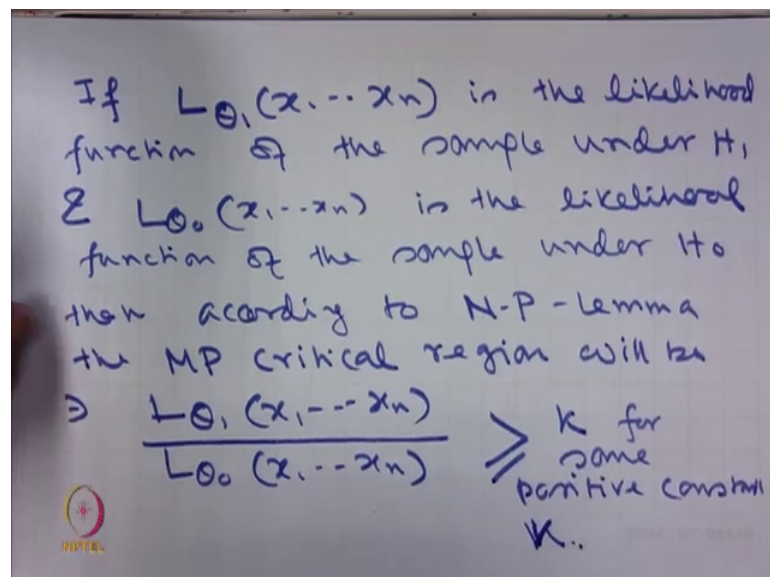 If Lθ₁ (x₁ -- xn) is the likelihood
function of the sample under H₁
& Lθ₀ (x₁ -- xn) is the likelihood
function of the sample under H₀
then acording to N-P-Lemma
the MP critical region will be
∋ Lθ₁ (x₁ --- xn) / Lθ₀ (x₁ --- xn) ≥ K for
some
positive constant
K..
NPTEL